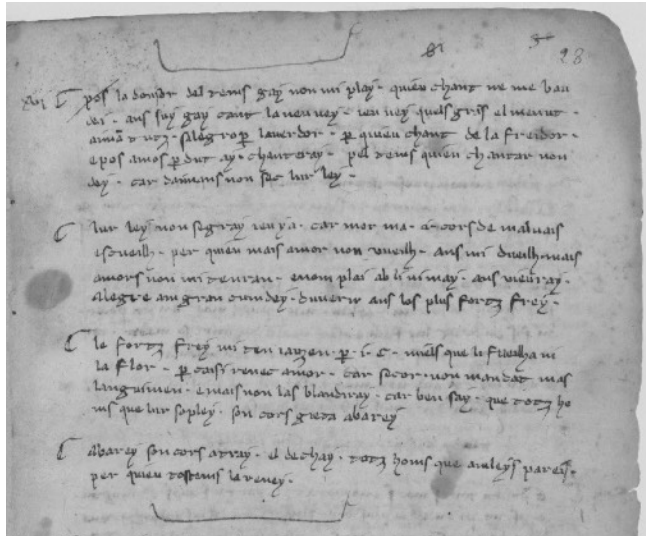 28
xvi pos la douſor del tems gay non mi play · quieu chant ne me bau
dei · ans ſoy gay cant la neu vey · ieu vey quels gris el menut ·
amā t utz · ſalegro p la verdor · p quieu chant de la freidor ·
e pos amos p dut ay · chantaray · pel tems quieu chantar non
dey · car damians non ſec lur ley ·
lur ley non ſegray ieu ya · car mor ma · i · cors de malvais
eſcueilh · per quieu mais amor non vueilh · ans mi dueilh · mais
amors non mi tenran · enom plai ab li ni may · ans vieuray ·
alegre am gran cundey · duvern ans los plus fortz frey ·
le fortz frey mi ten iauzen · p · i · c · miels que li fueilha ni
la flor · p caiſi renec amor · car ſocor · non mandat mas
languimen · e mais non las blandray · car ben ſay · que totz ho
ms que lur ſopley · ſon cors greta abarey
abarey ſon cors atray · el dechay · totz homs que am leys pareiſ ·
per quieu toſtems la reney ·